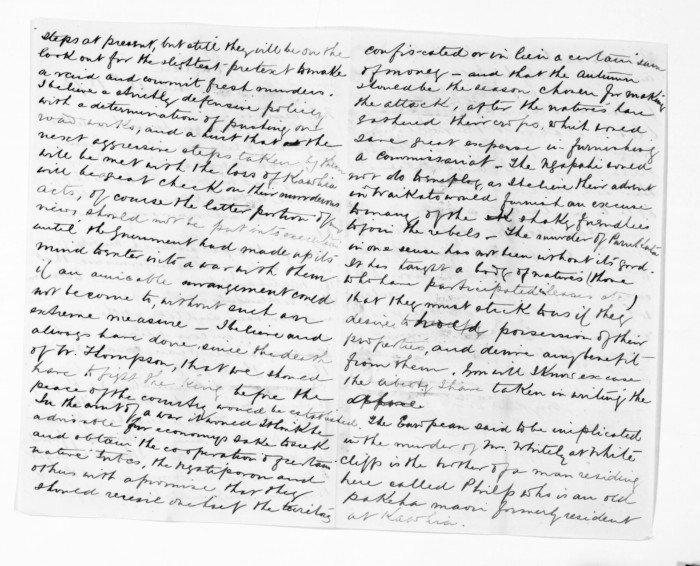 steps at present, but still they will be on the
look out for the slightest pretext to make
a raid and commit fresh murders.
I believe a strictly defensive policy
with a determination of pushing on
road works, and a hint that the
next aggressive steps taken by them
will be met with the loss of Kawhia
will be great check on their murderous
acts, of course the latter portion of my
views should not be put into execution
until the Government had made up its
mind to enter into a war with them
if an amicable arrangement could
not be come to, without such an
extreme measure — I believe and
always have done, since the death
of W. Thompson, that we should
have to fight the King before the
peace of the country would be established.
In the event of a war it would I think be
advisable for economys sake to seek
and obtain the co operation of certain
native tribes, the Ngatiporou and
others with a promise that they
should receive one half the territory
confiscated or in lieu a certain sum
of money — and that the Autumn
should be the season chosen for making
the attack, after the natives have
gathered their crops, which would
save great expense in furnishing
a commissariat. The Ngapuhi would
not do to employ, as I believe their advent
in Waikato would furnish an excuse
to many of the shaky friendlies
to join the rebels — The murder of
in one sense has not been without its good.
It has taught a body of natives (those
who have participated in leases &c)
that they must stick to us if they
desire to hold possession of their
properties, and derive any benefit
from them. You will I know excuse
the liberty I have taken in writing the
above
The European said to be implicated
in the murder of Mr. Whitely at White
cliffs is the brother of a man residing
here called Philps who is an old
pakeha maori formerly resident
at Kawhia.